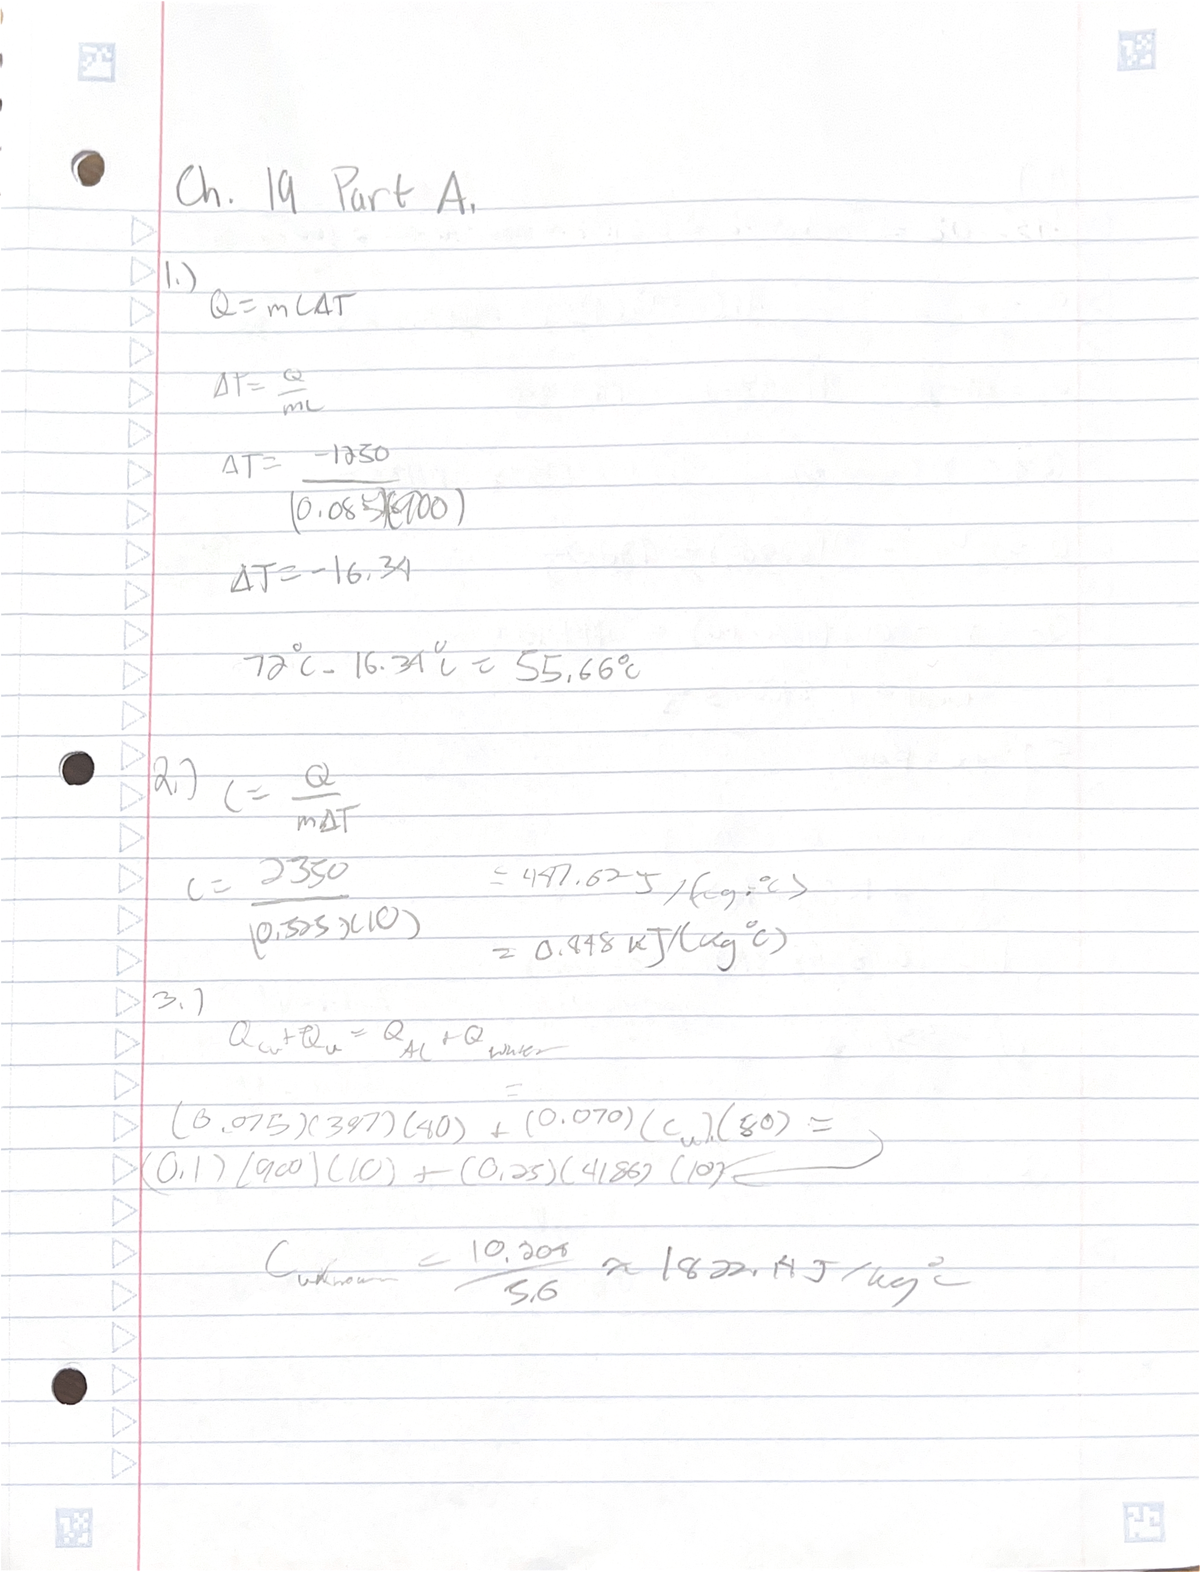 Ch. 19 Part A.
1.)
Q = mCΔT
ΔT = Q/mC
ΔT = -1250/(0.085)(900)
ΔT = -16.34
72°C - 16.34°C = 55.66°C
2.) C = Q/mΔT
C = 2350/(0.525)(10) = 447.62 J/(kg·°C)
= 0.448 kJ/(kg°C)
3.)
Q_cu + Q_u = Q_AL + Q_water
=
(0.075)(387)(40) + (0.070)(C_u)(80) =
(0.1)(900)(10) + (0.25)(4186)(10)
C_unknown = 10,204/5.6 ≈ 1822.1 J/kg°C